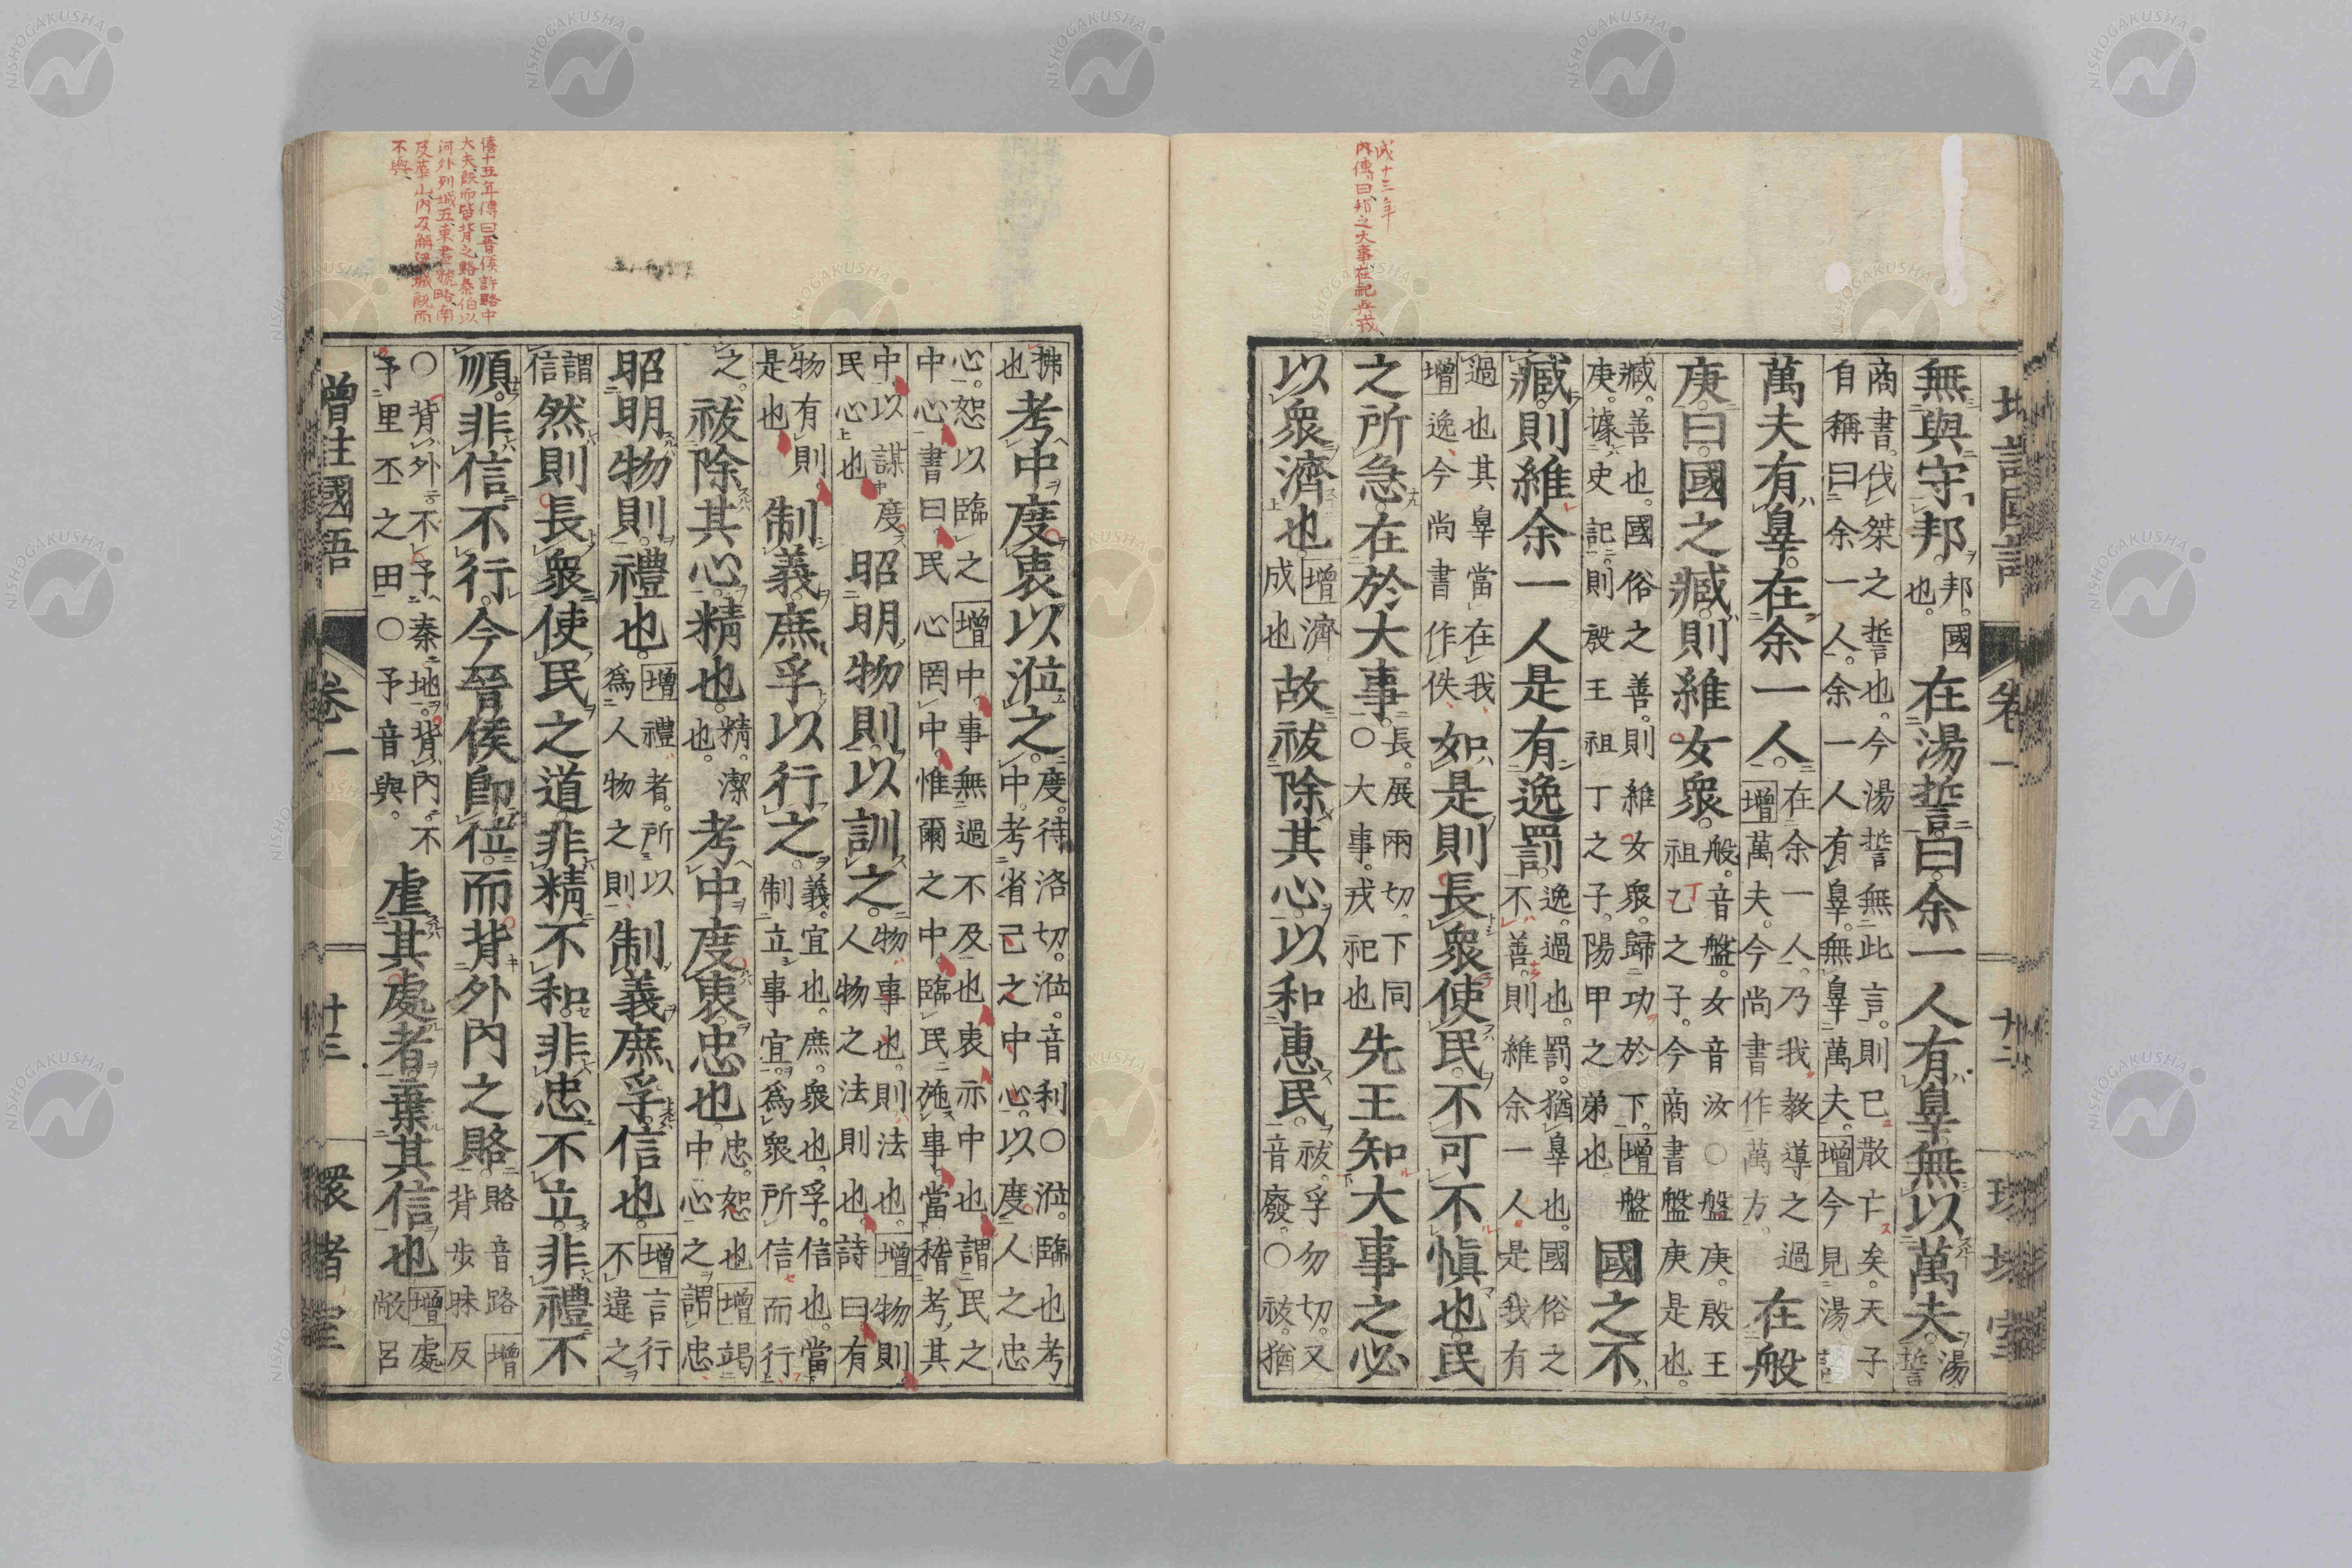 成十三年
內傳曰邦之大事在祀與戎
無與守邦。邦。國也。在湯誓曰。余一人有辠無以萬夫。湯誓
商書。伐桀之誓也。今湯誓無此言。則已散亡矣。天子自稱曰余一人。余一人有辠。無辠萬夫。增今見湯誥
萬夫有辠。在余一人。在余一人。乃我教導之過增萬夫。今尚書作萬方。在般
庚曰。國之臧。則維女衆。般。音盤。女音汝〇盤庚。殷王祖乙之子。今商書盤庚是也。
臧。善也。國俗之善。則維女衆。歸功於下。增盤庚。據史記。則殷王祖丁之子。陽甲之弟也國之不
臧。則維余一人是有逸罰。逸。過也。罰。猶辠也。國俗之不善。則維余一人。是我有
過也其辠當在我增逸今尚書作佚如是則長衆使民。不可不慎也。民
之所急。在於大事。長。展兩切。下同〇大事。戎祀也先王知大事之必
以衆濟也增濟成也故祓除其心。以和惠民。祓。孚勿切。又音廢。〇祓。猶
拂也考中度衷以涖之。度。待洛切。涖。音利〇涖。臨也考中。考省己之中心。以度人之忠
心。恕以臨之增中。事無過不及也衷亦中也。謂民之中心書曰。民心罔中。惟爾之中。臨民施事。當稽考其
中。以謀度民心也昭明物則。以訓之。物。事也。則法也。增物則人物之法則也。詩曰有
物有則。是也制義庶孚以行之。義。宜也。庶。衆也。孚。信也。當制立事宜。爲衆所信而行
之。祓除其心。精也。精。潔也。考中度衷。忠也。忠。恕也增竭中心之謂忠
昭明物則。禮也。增禮者。所以爲人物之則制義庶孚。信也。增言行不違之
謂信然則長衆使民之道。非精不和。非忠不立。非禮不
順。非信不行。今晉侯卽位。而背外內之賂。賂音路增背步昧反
〇背外。不予秦地。背內。不予里丕之田〇予音與。虐其處者。棄其信也。增處敞呂
增註國語 卷一 廿三 環堵室
僖十五年傳曰晉侯許賂中
大夫旣而皆背之賂秦伯以
河外列城五東盡虢略南
及華山內及解梁城旣而
不與